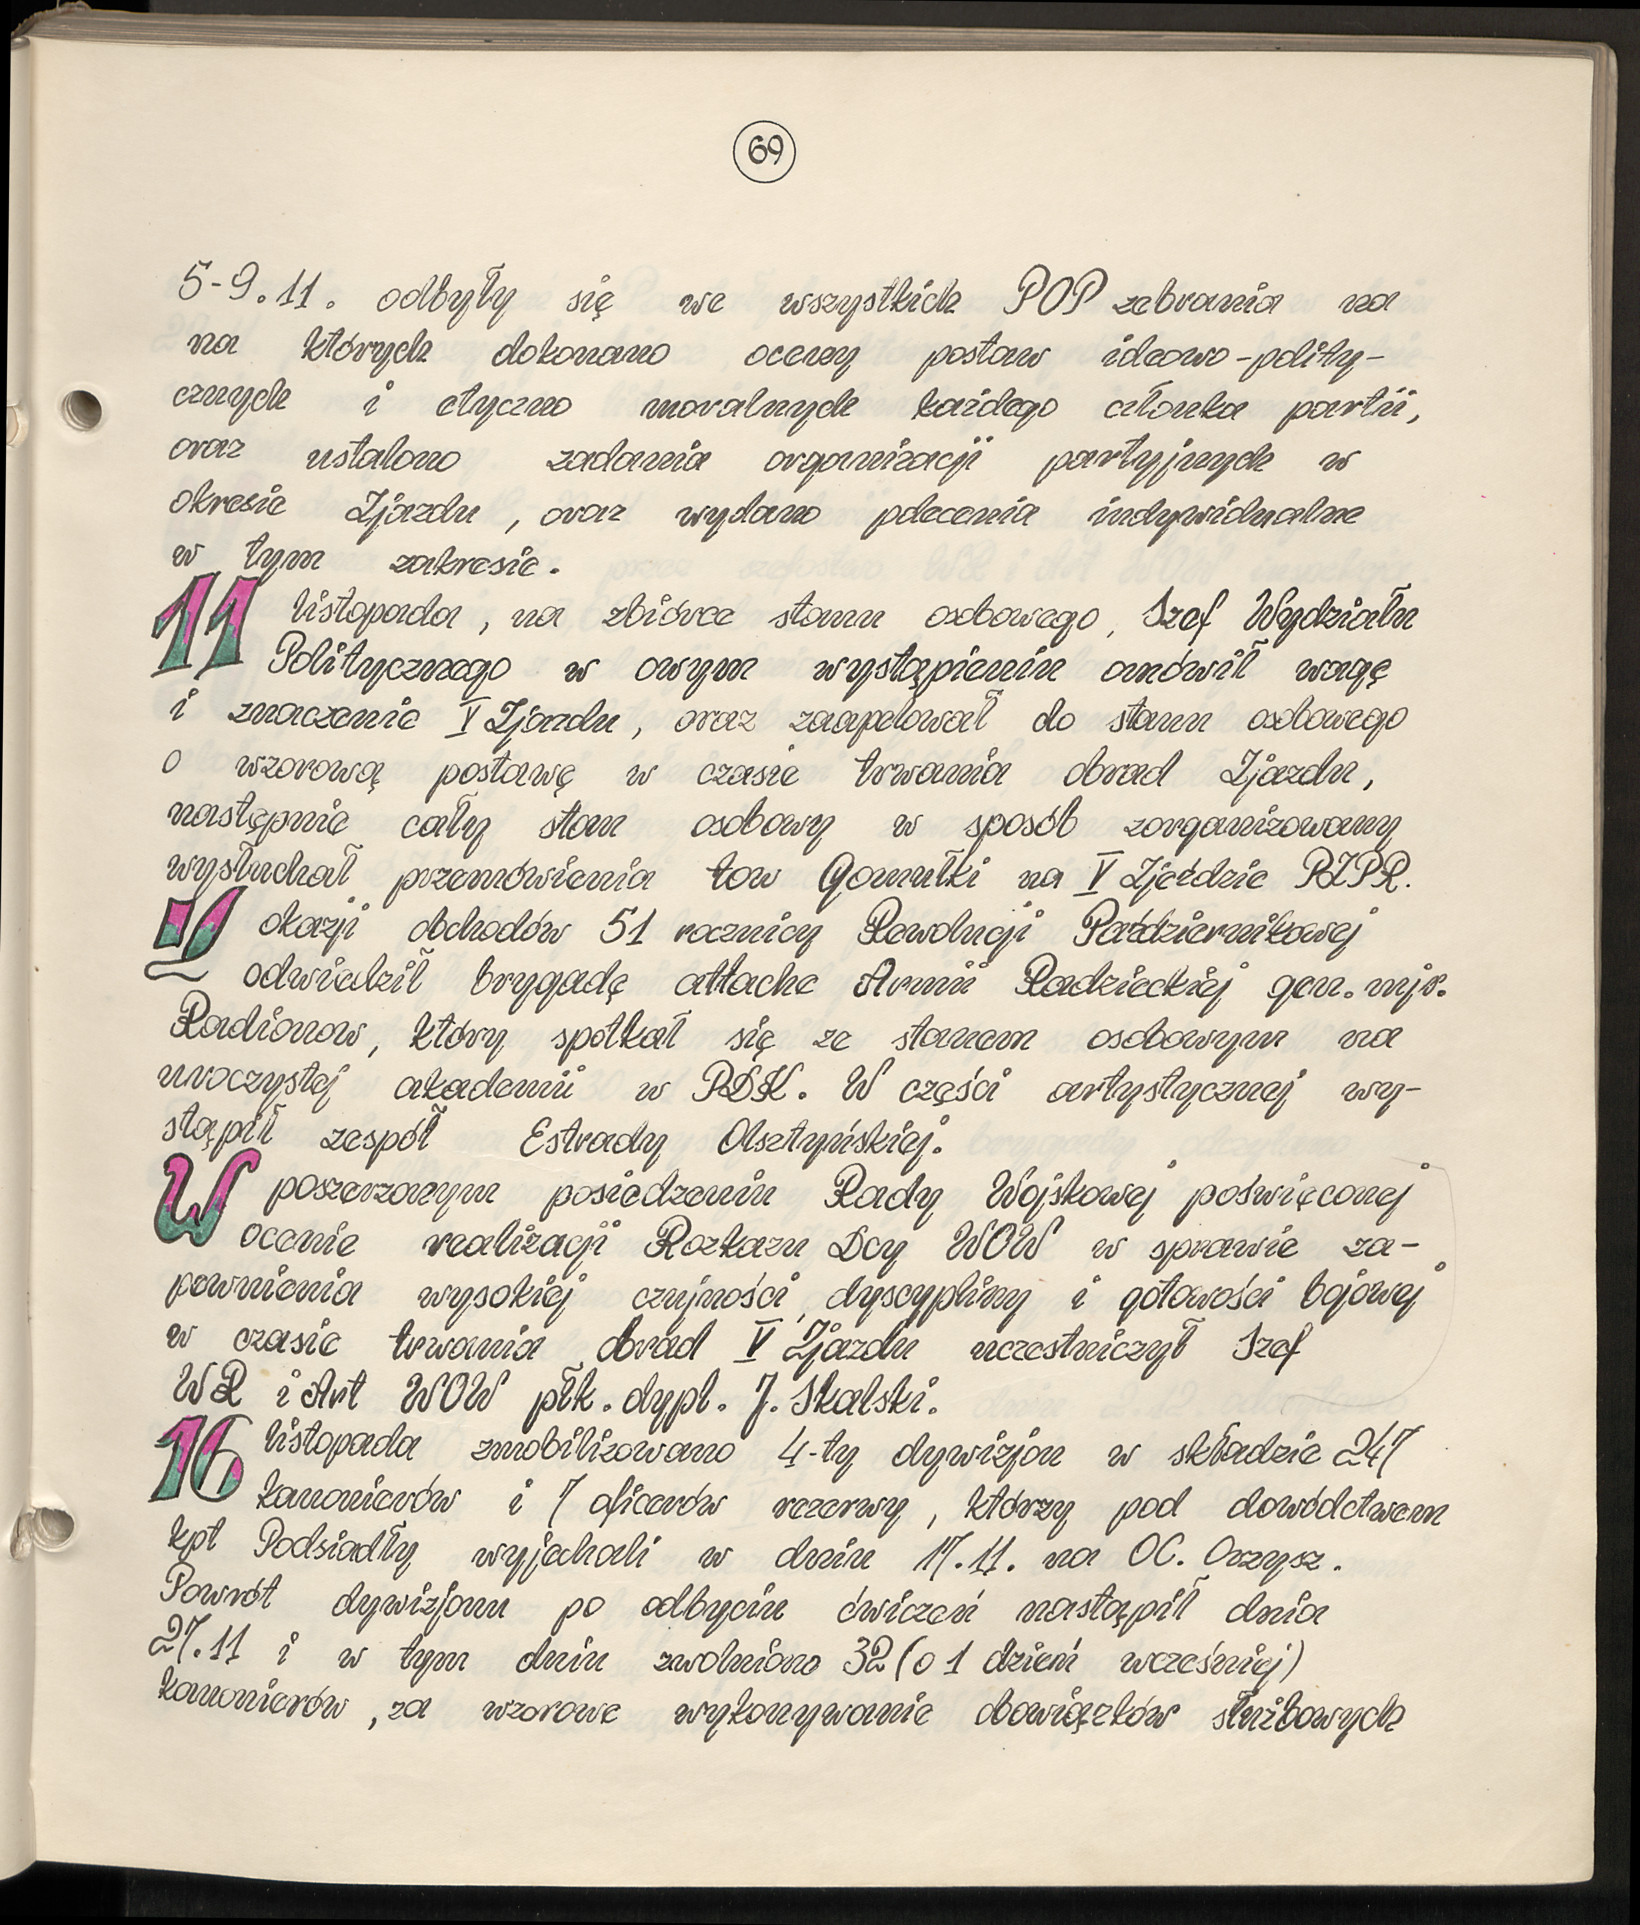 69
5-9.11. odbyły się we wszystkich POP zebrania na
na których dokonano oceny postaw ideowo-polity-
cznych i etyczno moralnych każdego członka partii,
oraz ustalono zadania organizacji partyjnych w
okresie Zjazdu, oraz wydano polecenia indywidualne
w tym zakresie.
11 listopada, na zbiórce stanu osobowego, Szef Wydziału
Politycznego w owym wystąpieniu omówił wagę
i znaczenie V Zjazdu, oraz zaapelował do stanu osobowego
o wzorową postawę w czasie trwania obrad Zjazdu,
następnie cały stan osobowy w sposób zorganizowany
wysłuchał przemówienia tow Gomułki na V Zjeździe PZPR.
Z okazji obchodów 51 rocznicy Rewolucji Październikowej
odwiedził brygadę attache Armii Radzieckiej gen. mjr.
Radionow, który spotkał się ze stanem osobowym na
uroczystej akademii w PDK. W części artystycznej wy-
stąpił zespół Estrady Olsztyńskiej.
W poszerzonym posiedzeniu Rady Wojskowej poświęconej
ocenie realizacji Rozkazu Dcy WOW w sprawie za-
pewnienia wysokiej czujności, dyscypliny i gotowości bojowej
w czasie trwania obrad V Zjazdu uczestniczył Szef
WR i Art WOW płk. dypl. J. Skalski.
16 listopada zmobilizowano 4-ty dywizjon w składzie 247
kanonierów i 7 oficerów rezerwy, którzy pod dowództwem
kpt Podsiadły wyjechali w dniu 17.11. na OC. Orzysz.
Powrót dywizjonu po odbyciu ćwiczeń nastąpił dnia
27.11 i w tym dniu zwolniono 32 (o 1 dzień wcześniej)
kanonierów, za wzorowe wykonywanie obowiązków służbowych